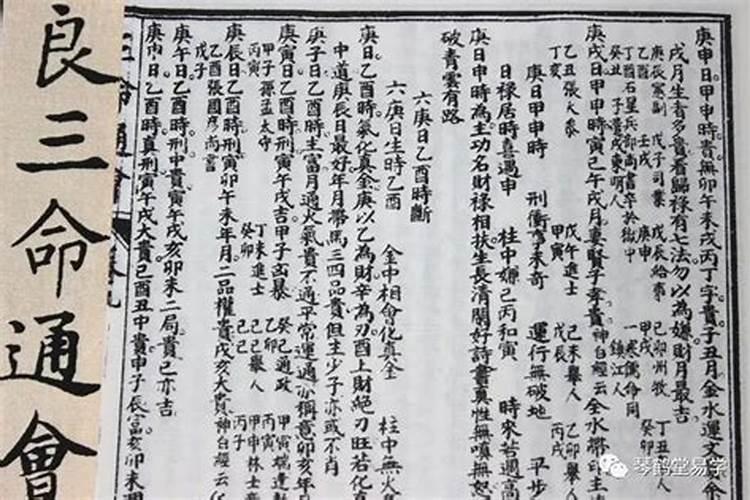 庚申日甲申時貴無卯午未戌丙丁字貴子丑月金水運文
戌月生者多貴看歸祿有七法勿以為嫌財月最吉
庚辰憲副 戊子司業 戊辰給事 己卯州牧 丁丑
丁酉 壬戌 庚申 甲戌 癸卯
丁酉石星兵部尚書卒於獄中 一寒儒命同
癸丑 子貴戌東明人 鎮江人
庚戌日甲申時寅巳午戌月妻賢子孝貴神白經云全水帶印主
乙丑張大參 戊午進士 己未舉人 乙卯舉
丁亥 甲寅 戊辰 丙戌
庚日甲申時 刑衝驚未奇 運行無破地 平步
日祿居時喜遇申 柱中嫌巳丙和寅 時來若遇高
庚日申時為主功名財祿相扶生長清閒好詩書真性無嗔無恕
破青雲有路
六庚日乙酉時斷
六庚日生時乙酉 金中相會化真金 柱中無火
庚日乙酉時氣化真金庚以乙為財辛為刃酉上財絕刃旺若化真
中道庚辰日最好年月帶馬三四品貴但主少子亦或不肖
庚子日乙酉時主富月通火氣貴不通平常運通亦稱意卯亥年月
甲子孫孟太守 丁未進士 癸巳通政 甲寅
丙寅 癸卯 乙卯 丙寅
庚寅日乙酉時刑寅午戌吉甲子凶暴 己巳舉人 甲申林士
庚辰日乙酉時刑寅卯午未年月二品權貴戌亥大貴神白經云
乙酉張國彥尚書 己巳 丙子
戊子
庚午日乙酉時刑中貴寅午戌亥卯未二局貴巳亦吉
庚申日乙酉時真刑寅午戌大貴己酉丑中貴申子辰富亥卯未
三命通會
良三命通會
琴鹤堂易学